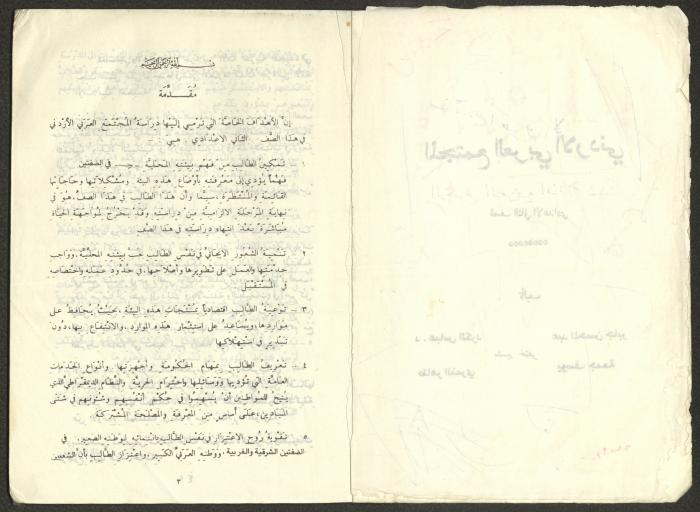 بسم الله الرحمن الرحيم
مقدمة
إن الأهداف الخاصة التي ترمي إليها دراسة المجتمع العربي الأردني
في هذا الصف الثاني الاعدادي، هي
١ - تمكين الطالب من فهم بيئته المحلية في الضفتين
فهماً يؤدي إلى معرفته بأوضاع هذه البيئة ومشكلاتها وحاجاتها
القائمة والمنتظرة، سيما وأن هذا الطالب في هذا الصف، هو في
نهاية المرحلة الالزامية من دراسته وقد يخرج لمواجهة الحياة
مباشرة بعد انتهاء دراسته في هذا الصف
٢ - تنمية الشعور الايجابي في نفس الطالب نحو بيئته المحلية، وواجب
خدمتها والعمل على تطويرها وإصلاحها، في حدود عمله واختصاصه
في المستقبل
٣ - توعية الطالب اقتصادياً بمنتجات هذه البيئة، بحيث يحافظ على
مواردها، ويساعد على استثمار هذه الموارد، والانتفاع بها، دون
تبذير في استهلاكها
٤ - تعريف الطالب بمهام الحكومة وأجهزتها وأنواع الخدمات
العامة التي تؤديها ووسائلها واحترام الحرية والنظام الديمقراطي الذي
يتيح للمواطنين أن يسهموا في حكم أنفسهم وشئونهم في شتى
الميادين، على أساس من المعرفة والمصلحة المشتركة
٥ - تقوية روح الاعتزاز في نفس الطالب بانتمائه لوطنه الصغير، في
الضفتين الشرقية والغربية، ووطنه العربي الكبير، واعتزاز الطالب بأن الشعبين
٣
المجتمع العربي الأردني
للصف الثاني الاعدادي
تأليف
عبد المحسن جابر
د. عباس الكرد
يوسف جمعة